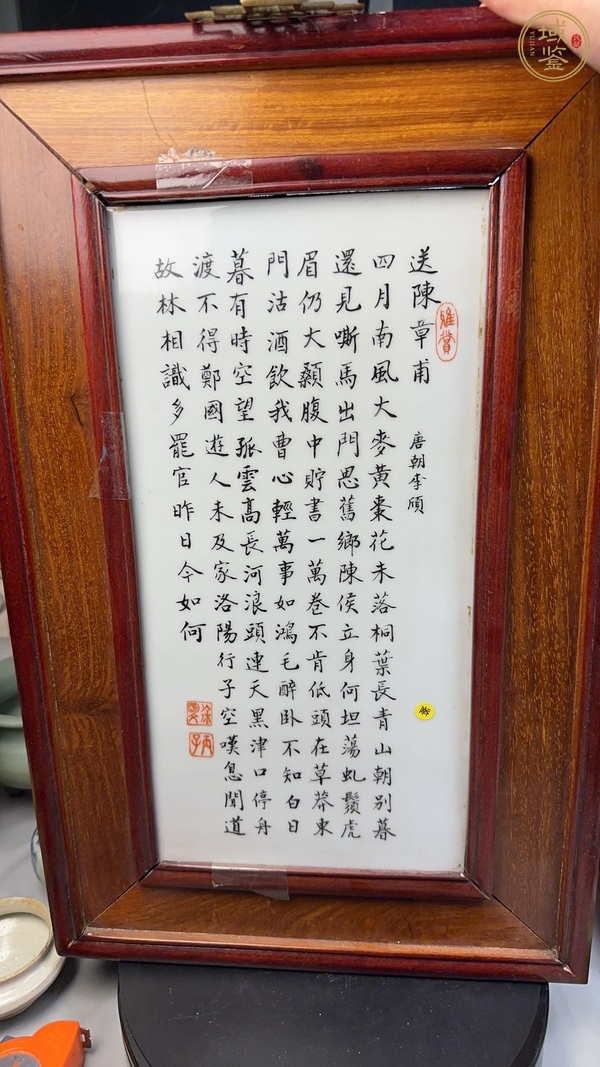 送陳章甫
雅賞
唐朝李頎
四月南風大麥黃棗花未落桐葉長青山朝別暮
還見嘶馬出門思舊鄉陳侯立身何坦蕩虬鬚虎
眉仍大顙腹中貯書一萬卷不肯低頭在草莽東
門沽酒飲我曹心輕萬事如鴻毛醉臥不知白日
暮有時空望孤雲高長河浪頭連天黑津口停舟
渡不得鄭國遊人未及家洛陽行子空嘆息聞道
故林相識多罷官昨日今如何
域鉴
YUJIAN